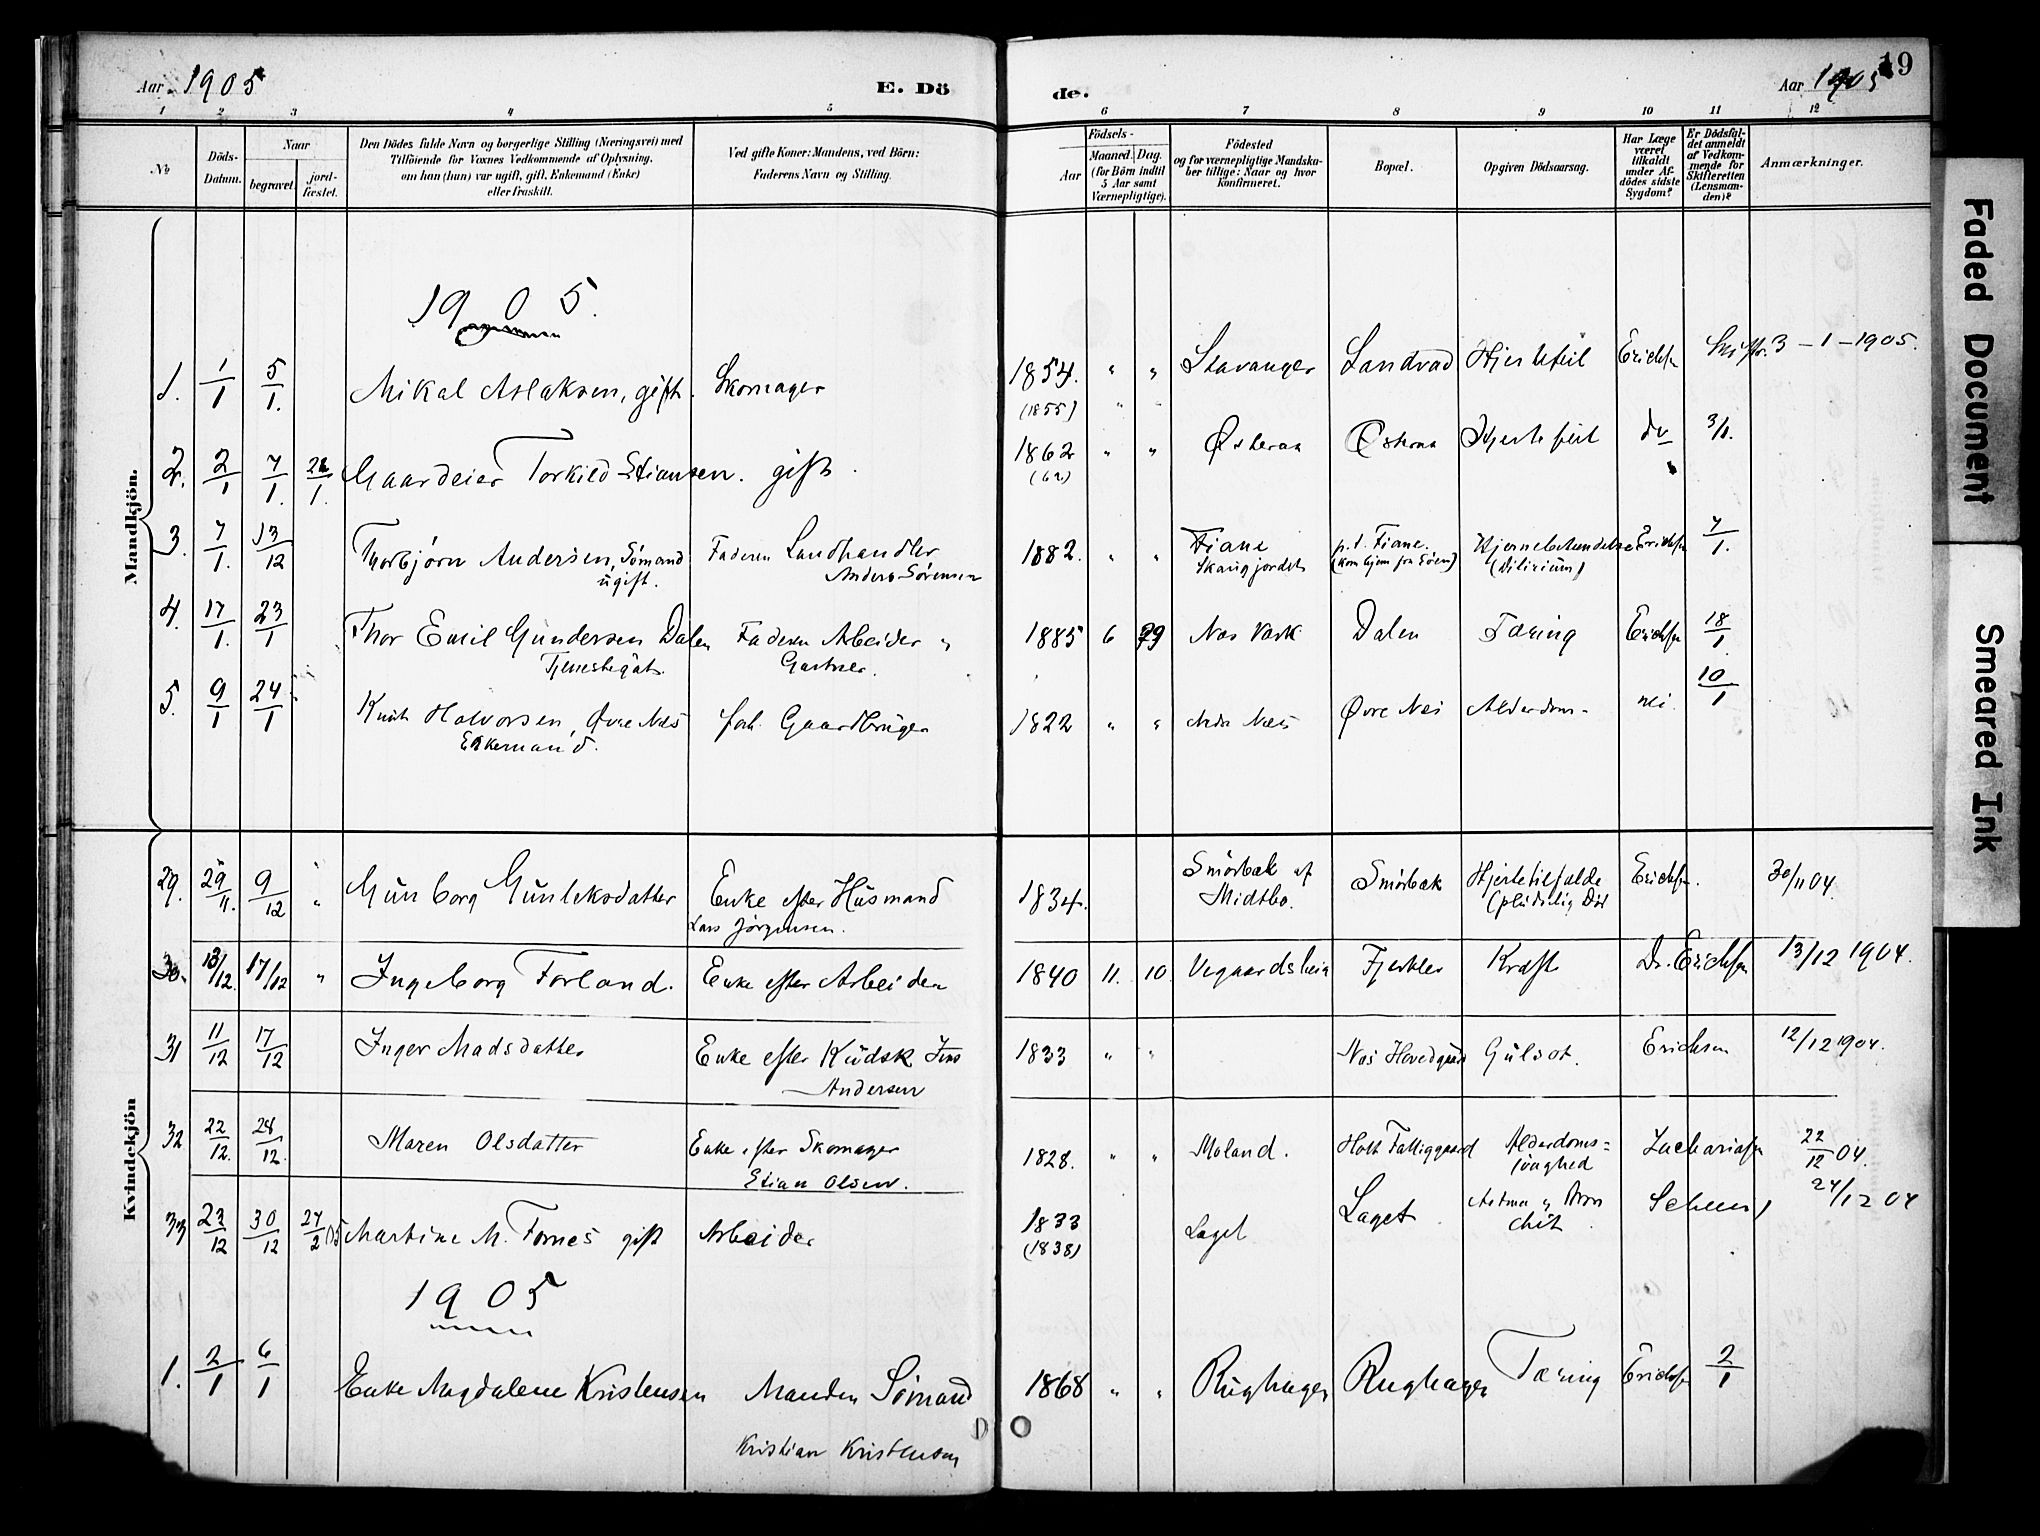 19
Aar 1905
E. Dö
de.
Aar 1905
1 2 3 4 5 6 7 8 9 10 11 12
No
Döds-Datum.
Naar
begravet.
jord-fæstet.
Den Dödes fulde Navn og borgerlige Stilling (Næringsvei) med
Tilföiende for Voxnes Vedkommende af Oplysning,
om han (hun) var ugift, gift, Enkemand (Enke)
eller fraskilt.
Ved gifte Koner: Mandens, ved Börn:
Faderens Navn og Stilling.
Födsels-
Aar
Maaned. Dag.
(for Börn indtil
5 Aar samt
Værnepligtige).
Födested
og for værnepligtige Mandska-
ber tillige: Naar og hvor
konfirmeret.
Bopæl.
Opgiven Dödsaarsag.
Har Læge
været
tilkaldt
under Af-
dödes sidste
Sygdom?
Er Dödsfal-
det anmeldt
af Vedkom-
mende for
Skifteretten
(Lensman-
den)?
Anmærkninger.
Mandkjön.
1905.
1. 1/1 5/1. Mikal Aslaksen, gift. Skomager 1854. " " Stavanger Landvad Hjertefeil Erichsen Skiftr. 3-1-1905.
(1855)
2. 2/1 7/1. 1. Gaardeier Torkild Stiansen. gift. 1862 " " Østeraa Østeraa Hjertefeil do 3/1.
(62)
3. 7/1. 13/12 Thorbjørn Andersen, Sömand Faderen Landhandler 1882. " " Fiane p.t. Fiane. Erichsen 7/1.
ugift. Anders Sörensen Skaugjordet (kom hjem fra Söen) (Dilirium)
4. 17/1. 23/1 Thor Emil Gundersen Dalen Faderen Arbeider " 1885 6 29 Næs Værk Dalen Tæring Erichsen 18/1
Tjenestegut. Gartner.
5. 9/1 24/1 Knut Halvorsen, Øvre Næs forh. Gaardbruger 1822 " " Nedre Næs Øvre Næs Alderdom- nei. 10/1
Enkemand.
Kvindekjön
29. 29/11. 9/12 " Gunborg Gunleksdatter Enke efter Husmand 1834. Smörbæk af Smörbæk Hjertetilfælde Erichsen. 30/11 04.
Lars Jörgensen. Midtbø. (pludselig Död
30. 13/12. 17/12 " Ingeborg Forland. Enke efter Arbeider 1840 11. 10. Vegaardsheia Fjerkler Kræft Dr. Erichsen 13/12 1904.
31 11/12 17/12 Inger Madsdatter Enke efter Kudsk Jens 1833 " " Næs Hovedgaard Gulsot. Erichsen 12/12 1904.
Andersen
32 22/12. 28/12. Maren Olsdatter Enke efter Skomager 1828. " " Moland. Holt Fattiggaard Alderdoms= Zachariasen 22/12 04.
Stian Olsen. svaghed
33 23/12 30/12 24/2 05 Martine M. Fornes gift Arbeider 1833 Laget Laget Astma " Bron 24/12 04
(1838) chit.
1905
1. 2/1 6/1 Enke Magdalene Kristensen Manden Sömand 1868 " " Rughagen Rughagen Tæring Erichsen 2/1
Kristian Kristensen
Faded Document
Smeared Ink